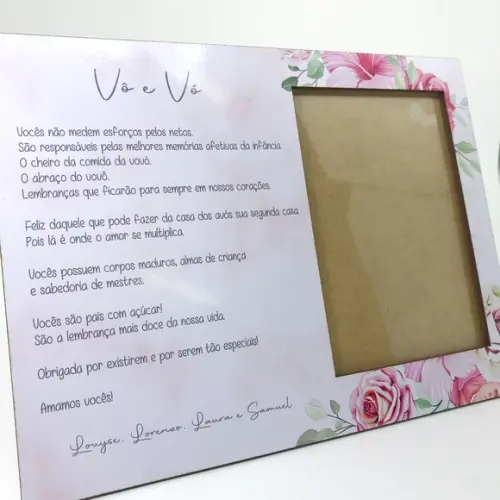 Vô e Vó
Vocês não medem esforços pelos netos.
São responsáveis pelas melhores memórias afetivas da infância.
O cheiro da comida da vovó.
O abraço do vovô.
Lembranças que ficarão para sempre em nossos corações.
Feliz daquele que pode fazer da casa dos avós sua segunda casa.
Pois lá é onde o amor se multiplica.
Vocês possuem corpos maduros, almas de criança
e sabedoria de mestres.
Vocês são pais com açúcar!
São a lembrança mais doce da nossa vida.
Obrigada por existirem e por serem tão especiais!
Amamos vocês!
Louyse, Lorenzo, Laura e Samuel